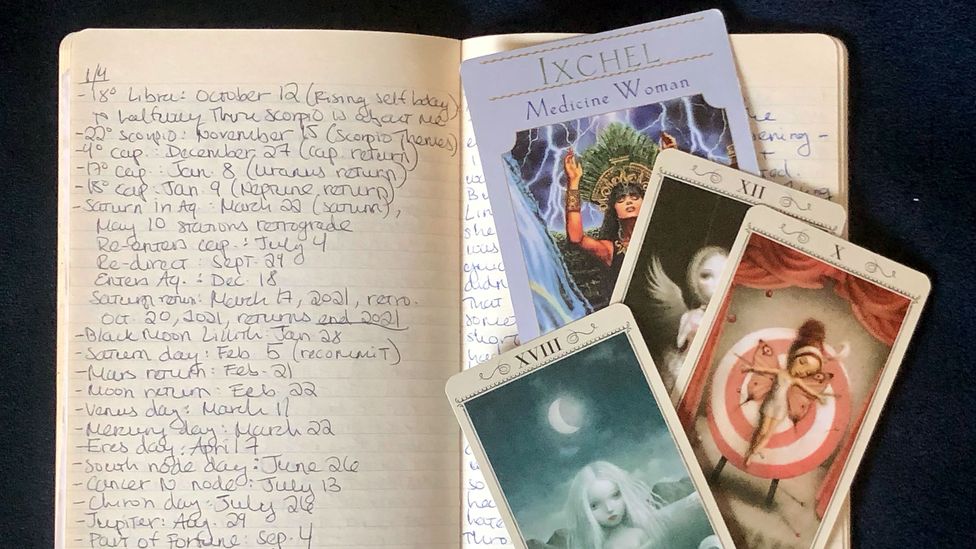 1/4
-18° Libra: October 12 (Rising self today)
halfway thru Scorpio is about me
-22° Scorpio: November 15 (Scorpio themes)
-4° cap.: December 27 (cap return)
-17° cap: Jan 8 (Uranus return)
-18° cap: Jan 9 (Neptune return)
-Saturn in Aq.: March 22 (Saturn),
May 10 stations retrograde
Re-enters cap.: July 4
Re-direct: Sept. 29
Enters Aq.: Dec. 18
Saturn return: March 17, 2021, retro.
Oct. 20, 2021, returns end 2021
-Black Moon Lilith: Jan 28
-Saturn day: Feb 5 (recommit)
-Mars return: Feb. 21
-Moon return: Feb. 22
-Venus day: March 11
-Mercury day: March 22
-Eres day: April 7
-South node day: June 26
-Cancer N node: July 13
-Chiron day: July 26
-Jupiter: Aug. 29
-Part of Fortune: Sep. 4
IXCHEL
Medicine Woman
XII
X
XVIII
she
was
didn
that